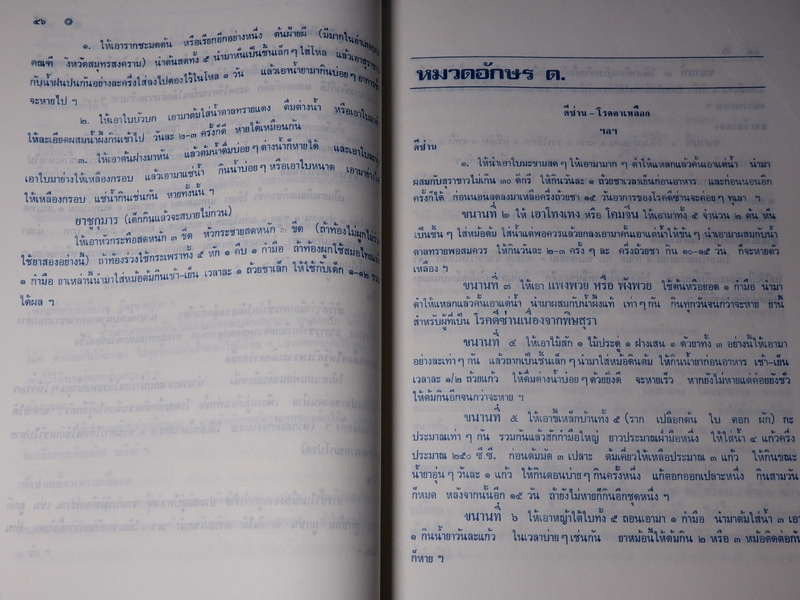 ๔๖
๑. ให้เอารากชะมดต้น หรือเรียกอีกอย่างหนึ่ง ต้นฝ้ายผี (มีมากในอำเภอ
คณฑี จังหวัดสมุทรสงคราม) นำต้นสดทั้ง ๕ นำมาหั่นเป็นชิ้นเล็กๆ ใส่โหล แล้วเอาสุรา
กับน้ำฝนปนกันอย่างละครึ่งใส่ลงไปดองไว้ในโหล ๑ วัน แล้วเอาน้ำยามากินบ่อยๆ อาการ
จะหายไป ฯ
๒. ให้เอาใบบัวบก เอามาตำใส่น้ำตาลทรายแดง ดื่มต่างน้ำ หรือเอาใบ
ให้ละเอียดผสมน้ำผึ้งกินเช้าไป วันละ ๒-๓ ครั้งก็ดี หายได้เหมือนกัน
๓. ให้เอาต้นฝางมาหั่น แล้วต้มน้ำดื่มบ่อยๆ ต่างน้ำก็หายได้ และเอาใบ
เอาใบมาย่างให้เหลืองกรอบ แล้วเอามาแช่น้ำ กินน้ำบ่อยๆ หรือเอาใบหนาด เอามา
ให้เหลืองกรอบ แช่น้ำกินเช่นกัน หายทั้งนั้น ฯ
ยาชูกุมาร (เด็กกินแล้วจะสบายไม่กวน)
ให้เอาหัวกระทือสดหนัก ๓ ขีด หัวกระชายสดหนัก ๓ ขีด (ถ้าท้องไม่ผูกไม่
ใช้ยาสองอย่างนี้) ถ้าท้องร่วงใช้กระเพราทั้ง ๕ หัก ๑ คืบ ๑ กำมือ ถ้าท้องผูกใช้สมอไทย
๑ กำมือ ยาเหล่านี้นำมาใส่หม้อต้มกินเช้า-เย็น เวลาละ ๑ ถ้วยชาเล็ก ให้ใช้กับเด็ก ๑-๑๒
ได้ผล ฯ
หมวดอักษร ด.
ดีซ่าน-โรคตาเหลือก
ฯลฯ
ดีซ่าน
๑. ให้นำเอาใบมะขามสดๆ ให้เอามากๆ ตำให้แหลกแล้วคั้นเอาแต่น้ำ นำมา
ผสมกับสุราขาวไม่เกิน ๓๐ ดีกรี ให้กินวันละ ๑ ถ้วยชาเวลาเย็นก่อนอาหาร และก่อนนอนอีก
ครั้งก็ได้ ก่อนนอนลดลงมาเหลือครึ่งถ้วยชา ๑๕ วันอาการของโรคดีซ่านจะค่อยๆ ทุเลา ฯ
ขนานที่ ๒ ให้ เอาโทงเทง หรือ โคมจีน ให้เอามาทั้ง ๕ จำนวน ๒ ต้น หั่น
เป็นชิ้นๆ ใส่หม้อต้ม ใส่น้ำแต่พอควรแล้วยกลงเอามาคั้นเอาแต่น้ำให้ข้นๆ นำเอามาผสมกับน้ำ
ตาลทรายพอสมควร ให้กินวันละ ๒-๓ ครั้งๆ ละ ครึ่งถ้วยชา กิน ๑๐-๑๕ วัน ก็จะหายตัว
เหลือง ฯ
ขนานที่ ๓ ให้ เอา แพงพวย หรือ พังพวย ใช้ต้นหรือยอด ๑ กำมือ นำมา
ตำให้แหลกแล้วคั้นเอาแต่น้ำ นำมาผสมกับน้ำผึ้งแท้ เท่าๆ กัน กินทุกวันจนกว่าจะหาย ยานี้
สำหรับผู้ที่เป็น โรคดีซ่านเนื่องจากพิษสุรา
ขนานที่ ๔ ให้เอาไม้สัก ๑ ไม้ประดู่ ๑ ฝางเสน ๑ ด้วยาทั้ง ๓ อย่างนี้ให้เอามา
อย่างละเท่าๆ กัน แล้วถากเป็นชิ้นเล็กๆ นำมาใส่หม้อดินต้ม ให้กินน้ำยาก่อนอาหาร เช้า-เย็น
เวลาละ ๑/๒ ถ้วยแก้ว ให้ดื่มต่างน้ำบ่อยๆ ด้วยยิ่งดี จะหายเร็ว หากยังไม่หายแต่ค่อยยังชั่ว
ให้ต้มกินอีกจนกว่าจะหาย ฯ
ขนานที่ ๕ ให้เอาขี้เหล็กบ้านทั้ง ๕ (ราก เปลือกต้น ใบ ดอก ผัก) กะ
ประมาณเท่าๆ กัน รวมกันแล้วสักกำมือใหญ่ ยาวประมาณฝ่ามือหนึ่ง ให้ใส่น้ำ ๔ แก้วครึ่ง
ประมาณ ๒๕๐ ซี.ซี. ก่อนต้มมัด ๓ เปลาะ ต้มเคี่ยวให้เหลือประมาณ ๓ แก้ว ให้กินขณะ
น้ำยาอุ่นๆ วันละ ๑ แก้ว ให้กินตอนบ่ายๆ กินครั้งหนึ่ง แก้ดอกออกเปลาะหนึ่ง กินสามวัน
ก็หมด หลังจากนั้นอีก ๑๕ วัน ถ้ายังไม่หายก็กินอีกชุดหนึ่ง ฯ
ขนานที่ ๖ ให้เอาหญ้าใต้ใบทั้ง ๕ ถอนเอามา ๑ กำมือ นำมาต้มใส่น้ำ ๓ เอา
๑ กินน้ำยาวันละแก้ว ในเวลาบ่ายๆ เช่นกัน ยาหม้อนี้ให้ต้มกิน ๒ หรือ ๓ หม้อติดต่อกัน
ก็หาย ฯ